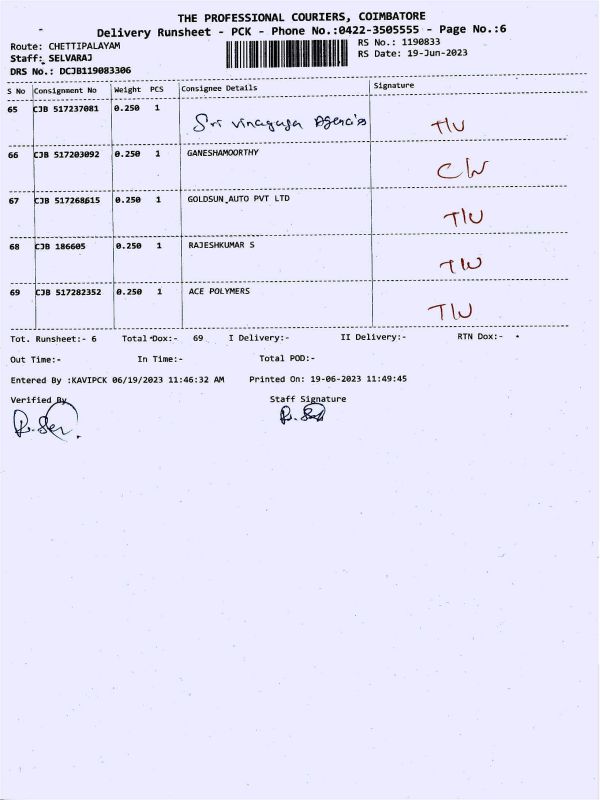 THE PROFESSIONAL COURIERS, COIMBATORE
Delivery Runsheet - PCK - Phone No.:0422-3505555 - Page No.:6
Route: CHETTIPALAYAM RS No.: 1190833
Staff: SELVARAJ RS Date: 19-Jun-2023
DRS No.: DCJB119083306
S No Consignment No Weight PCS Consignee Details Signature
65 CJB 517237081 0.250 1 Sri Vinayaga Agencies T/W
66 CJB 517203092 0.250 1 GANESHAMOORTHY C/W
67 CJB 517268615 0.250 1 GOLDSUN AUTO PVT LTD T/W
68 CJB 186605 0.250 1 RAJESHKUMAR S T/W
69 CJB 517282352 0.250 1 ACE POLYMERS T/W
Tot. Runsheet:- 6 Total Dox:- 69 I Delivery:- II Delivery:- RTN Dox:-
Out Time:- In Time:- Total POD:-
Entered By :KAVIPCK 06/19/2023 11:46:32 AM Printed On: 19-06-2023 11:49:45
Verified By Staff Signature